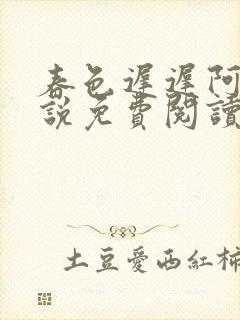 春色遲遲阿
説免費閱讀
土豆愛西紅柿